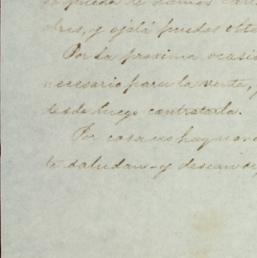 pueda
dres, y ojalá puedas obte
Por la proxima ocasio
necesario para la venta,
desde luego contratarla.
Por casa no hay nove
te saludan y desean